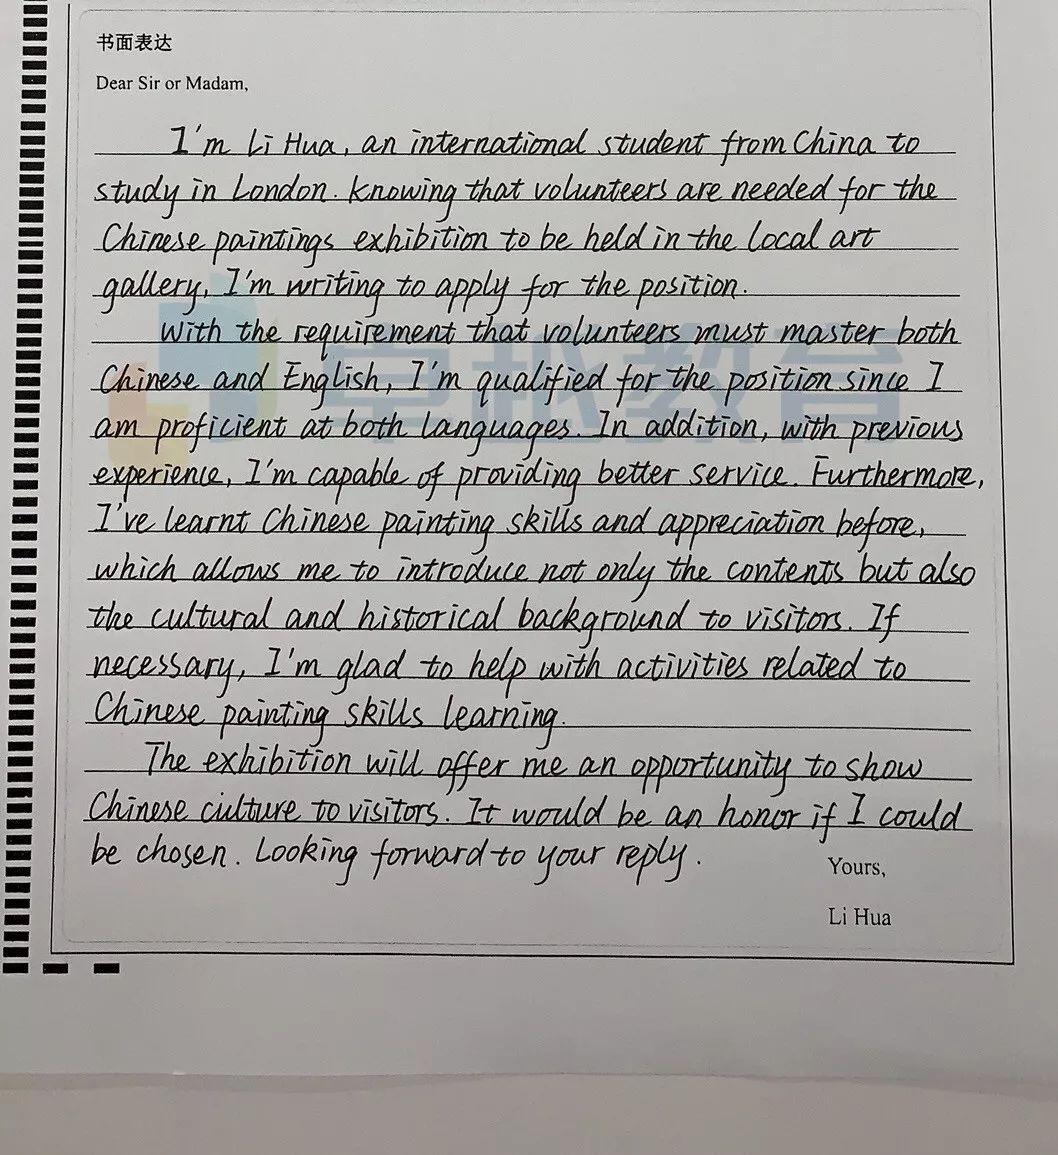 书面表达
Dear Sir or Madam,
I'm Li Hua, an international student from China to
study in London. Knowing that volunteers are needed for the
Chinese paintings exhibition to be held in the local art
gallery, I'm writing to apply for the position.
With the requirement that volunteers must master both
Chinese and English, I'm qualified for the position since I
am proficient at both languages. In addition, with previous
experience, I'm capable of providing better service. Furthermore,
I've learnt Chinese painting skills and appreciation before,
which allows me to introduce not only the contents but also
the cultural and historical background to visitors. If
necessary, I'm glad to help with activities related to
Chinese painting skills learning.
The exhibition will offer me an opportunity to show
Chinese culture to visitors. It would be an honor if I could
be chosen. Looking forward to your reply.
Yours,
Li Hua
卓越教育